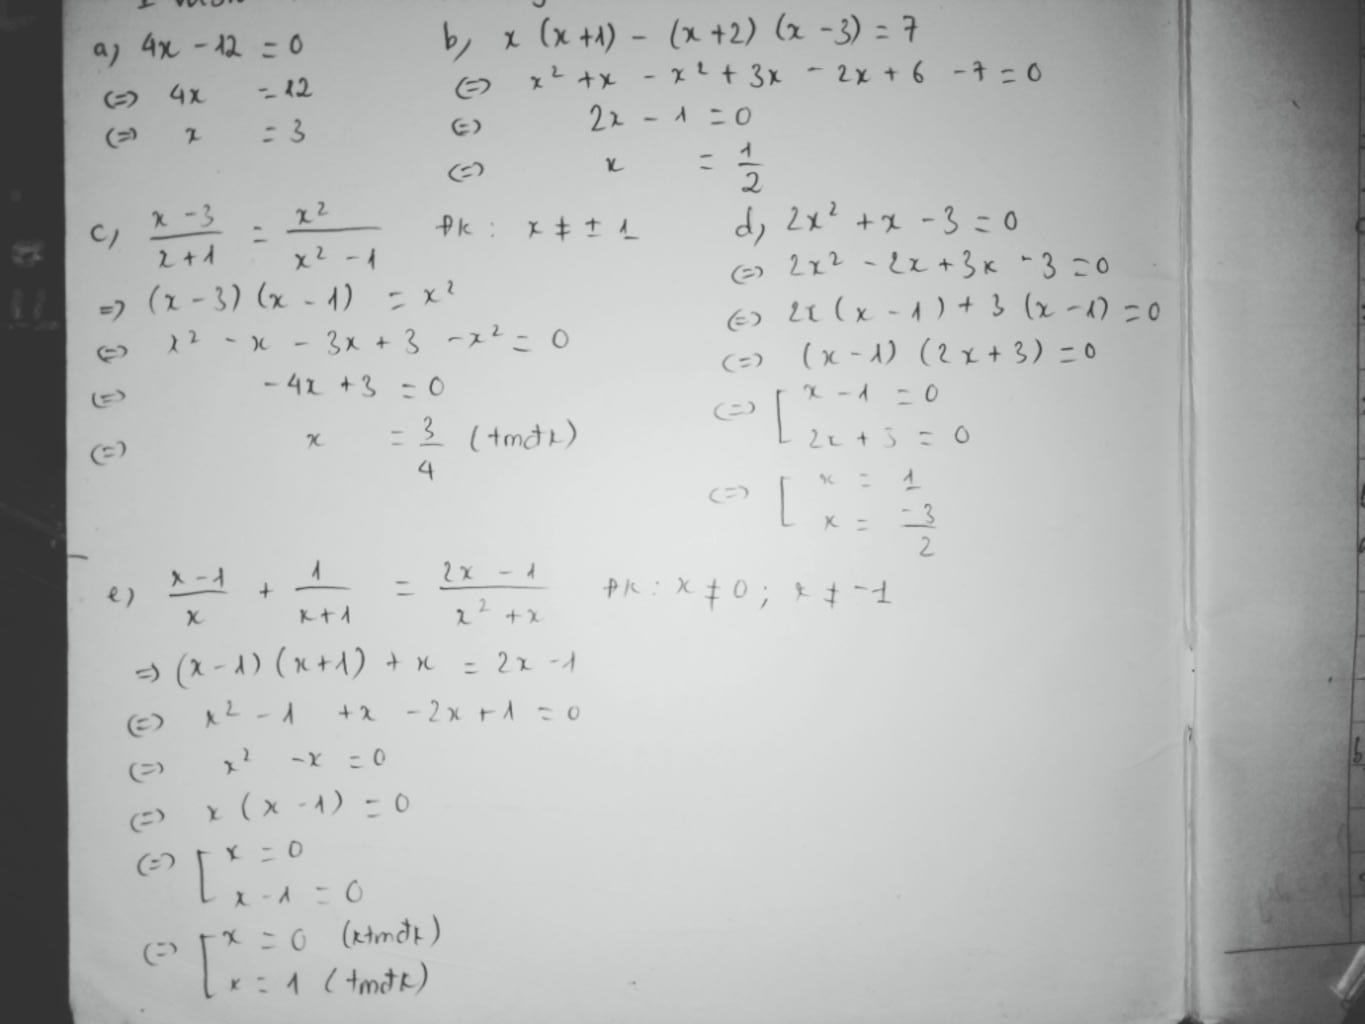 a) 4x - 12 = 0
<=> 4x = 12
<=> x = 3
b) x (x + 1) - (x + 2) (x - 3) = 7
<=> x² + x - x² + 3x - 2x + 6 - 7 = 0
<=> 2x - 1 = 0
<=> x = 1/2
c) (x - 3)/(2 + 1) = x²/(x² - 1) ĐK : x ≠ ± 1
=> (x - 3) (x - 1) = x²
<=> x² - x - 3x + 3 - x² = 0
<=> - 4x + 3 = 0
<=> x = 3/4 (tmđk)
d) 2x² + x - 3 = 0
<=> 2x² - 2x + 3x - 3 = 0
<=> 2x (x - 1) + 3 (x - 1) = 0
<=> (x - 1) (2x + 3) = 0
<=> [ x - 1 = 0
2x + 3 = 0
<=> [ x = 1
x = -3/2
e) (x - 1)/x + 1/(x + 1) = (2x - 1)/(x² + x) ĐK : x ≠ 0 ; x ≠ -1
=> (x - 1) (x + 1) + x = 2x - 1
<=> x² - 1 + x - 2x + 1 = 0
<=> x² - x = 0
<=> x (x - 1) = 0
<=> [ x = 0
x - 1 = 0
<=> [ x = 0 (ktmđk)
x = 1 (tmđk)